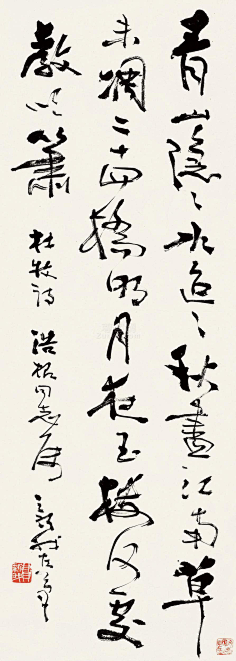 青山隐〻水迢〻秋尽江南草
未凋二十四桥明月夜玉楼何处
教吹箫
杜牧诗 浩招同志属